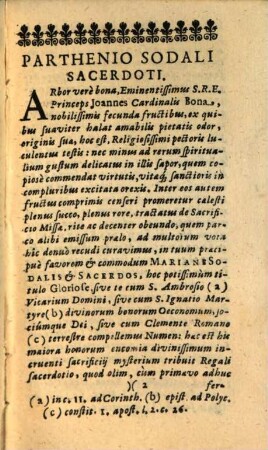 PARTHENIO SODALI
SACERDOTI.
ARbor verè bona, Eminentissimus S.R.E.
Princeps Joannes Cardinalis Bona,
nobilissimis fecunda fructibus, ex qui
bus suaviter halat amabilis pietatis odor,
originis sua, hoc est, Religiosissimi pectoris lu-
culentus testis: nec minus ad rerum spiritua-
lium gustum delicatus in illis sapor, quem copi-
osè commendat virtutis, vitæq́, sanctioris in
compluribus excitata orexis. Inter eos autem
fructus comprimis censeri promeretur calesti
plenus succo, plenus rore, tractatus de Sacrifi-
cio Missæ, rite ac decenter obeundo, quem par-
co alibi emissum pralo, ad multorum vota
hîc denuò recudi curavimus, in tuum præci-
puè favorem & commodum MARIANE SO-
DALIS & SACERDOS, hoc potissimùm ti-
tulo Gloriose, sive te cum S. Ambrosio (a)
Vicarium Domini, sive cum S. Ignatio Mar-
tyre (b) divinorum bonorum Oeconomum, so-
ciúmque Dei, sive cum Clemente Romano
(c) terrestre compellemus Numen: hæc est hie
maiora honorum encomia divinissimum in-
cruenti sacrificij mysterium tribuit Regali
sacerdotio, quod olim, cum primavo adhuc
)( 2 fer-
(a) inc. 11. ad Corinth. (b) epist. ad Polyc.
(c) constit. 1. apost. l. 2. c. 26.